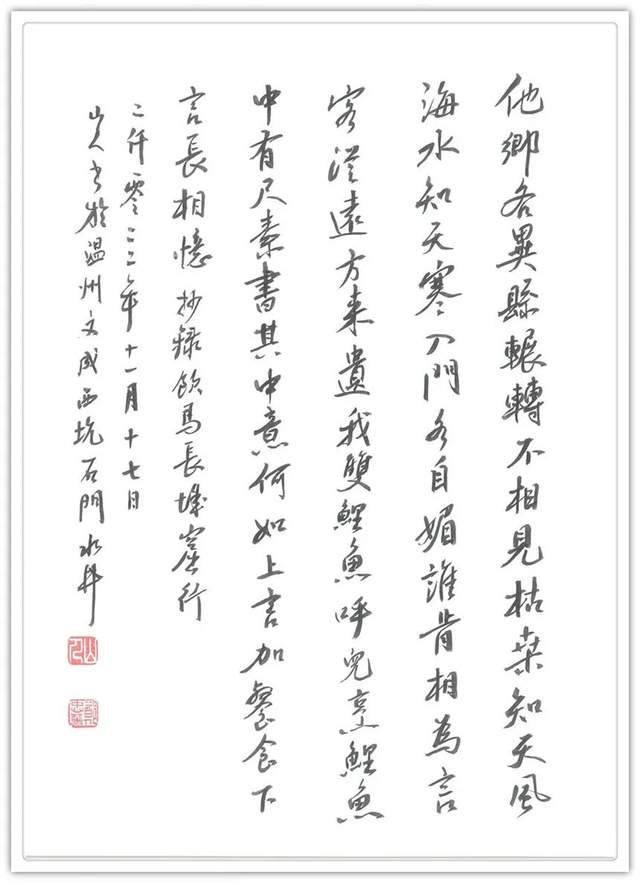 他鄉各異縣輾轉不相見枯桒知天風
海水知天寒入門各自媚誰肯相為言
客從遠方來遺我雙鯉魚呼兒烹鯉魚
中有尺素書其中意何如上言加餐食下
言長相憶 抄錄飲馬長城窟行
二仟零二二年十一月十七日
山人书於溫州文成西坑石門水井
山人